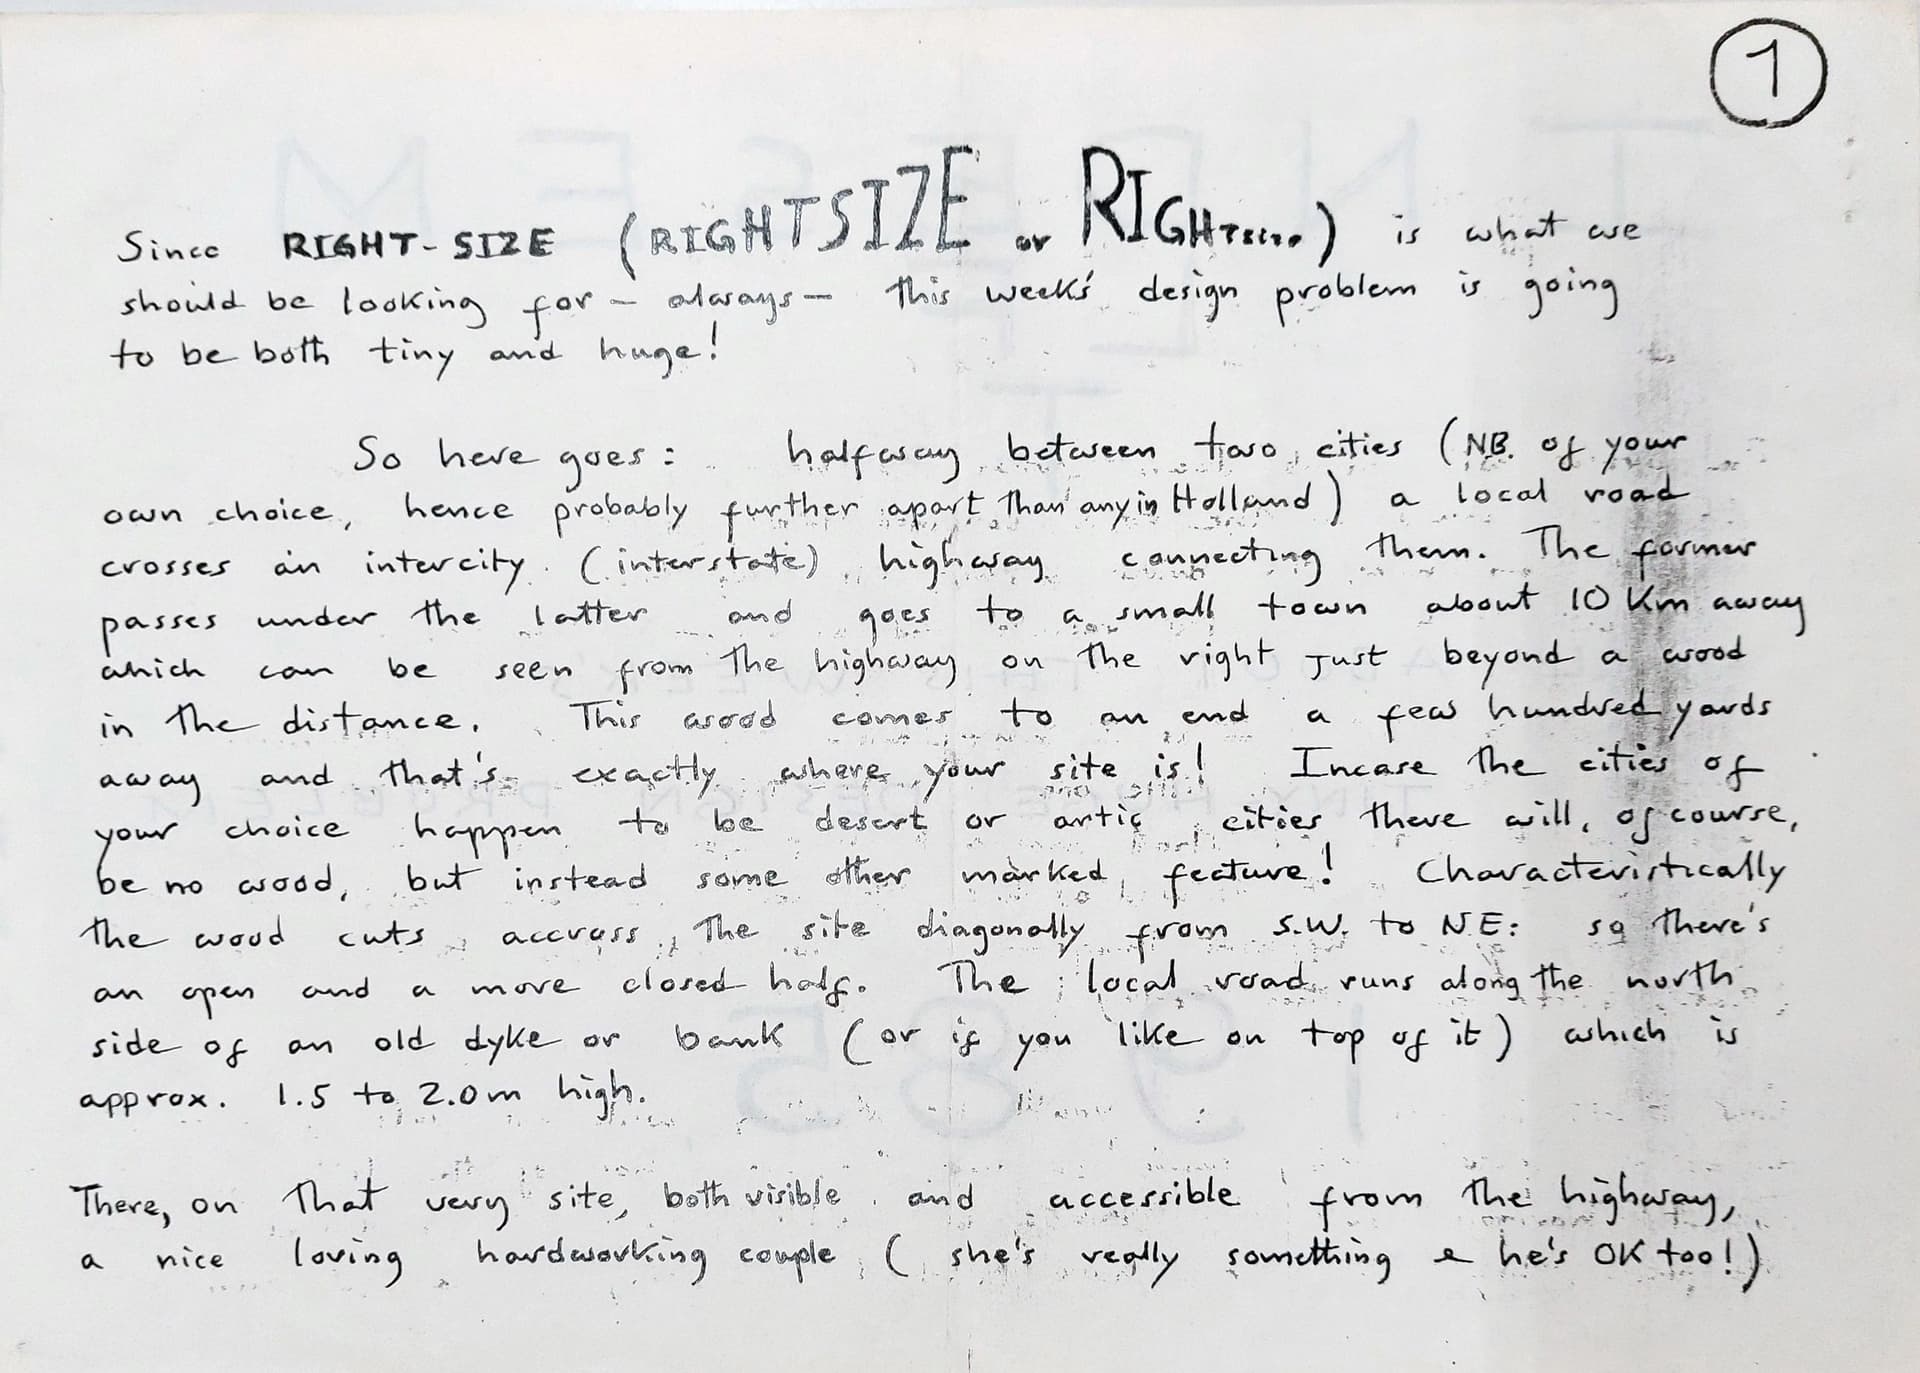 1
Since RIGHT-SIZE (RIGHTSIZE or RIGHTSIZE) is what we
should be looking for – always – this week's design problem is going
to be both tiny and huge!
So here goes: halfway between two cities (NB. of your
own choice, hence probably further apart than any in Holland) a local road
crosses an intercity (interstate) highway connecting them. The former
passes under the latter and goes to a small town about 10 Km away
which can be seen from the highway on the right just beyond a wood
in the distance. This wood comes to an end a few hundred yards
away and that's exactly where your site is! Incase the cities of
your choice happen to be desert or artic cities there will, of course,
be no wood, but instead some other marked feature! Characteristically
the wood cuts accross the site diagonally from S.W. to N.E: so there's
an open and a more closed half. The local road runs along the north
side of an old dyke or bank (or if you like on top of it) which is
approx. 1.5 to 2.0m high.
There, on that very site, both visible and accessible from the highway,
a nice loving hardworking couple (she's really something & he's OK too!)